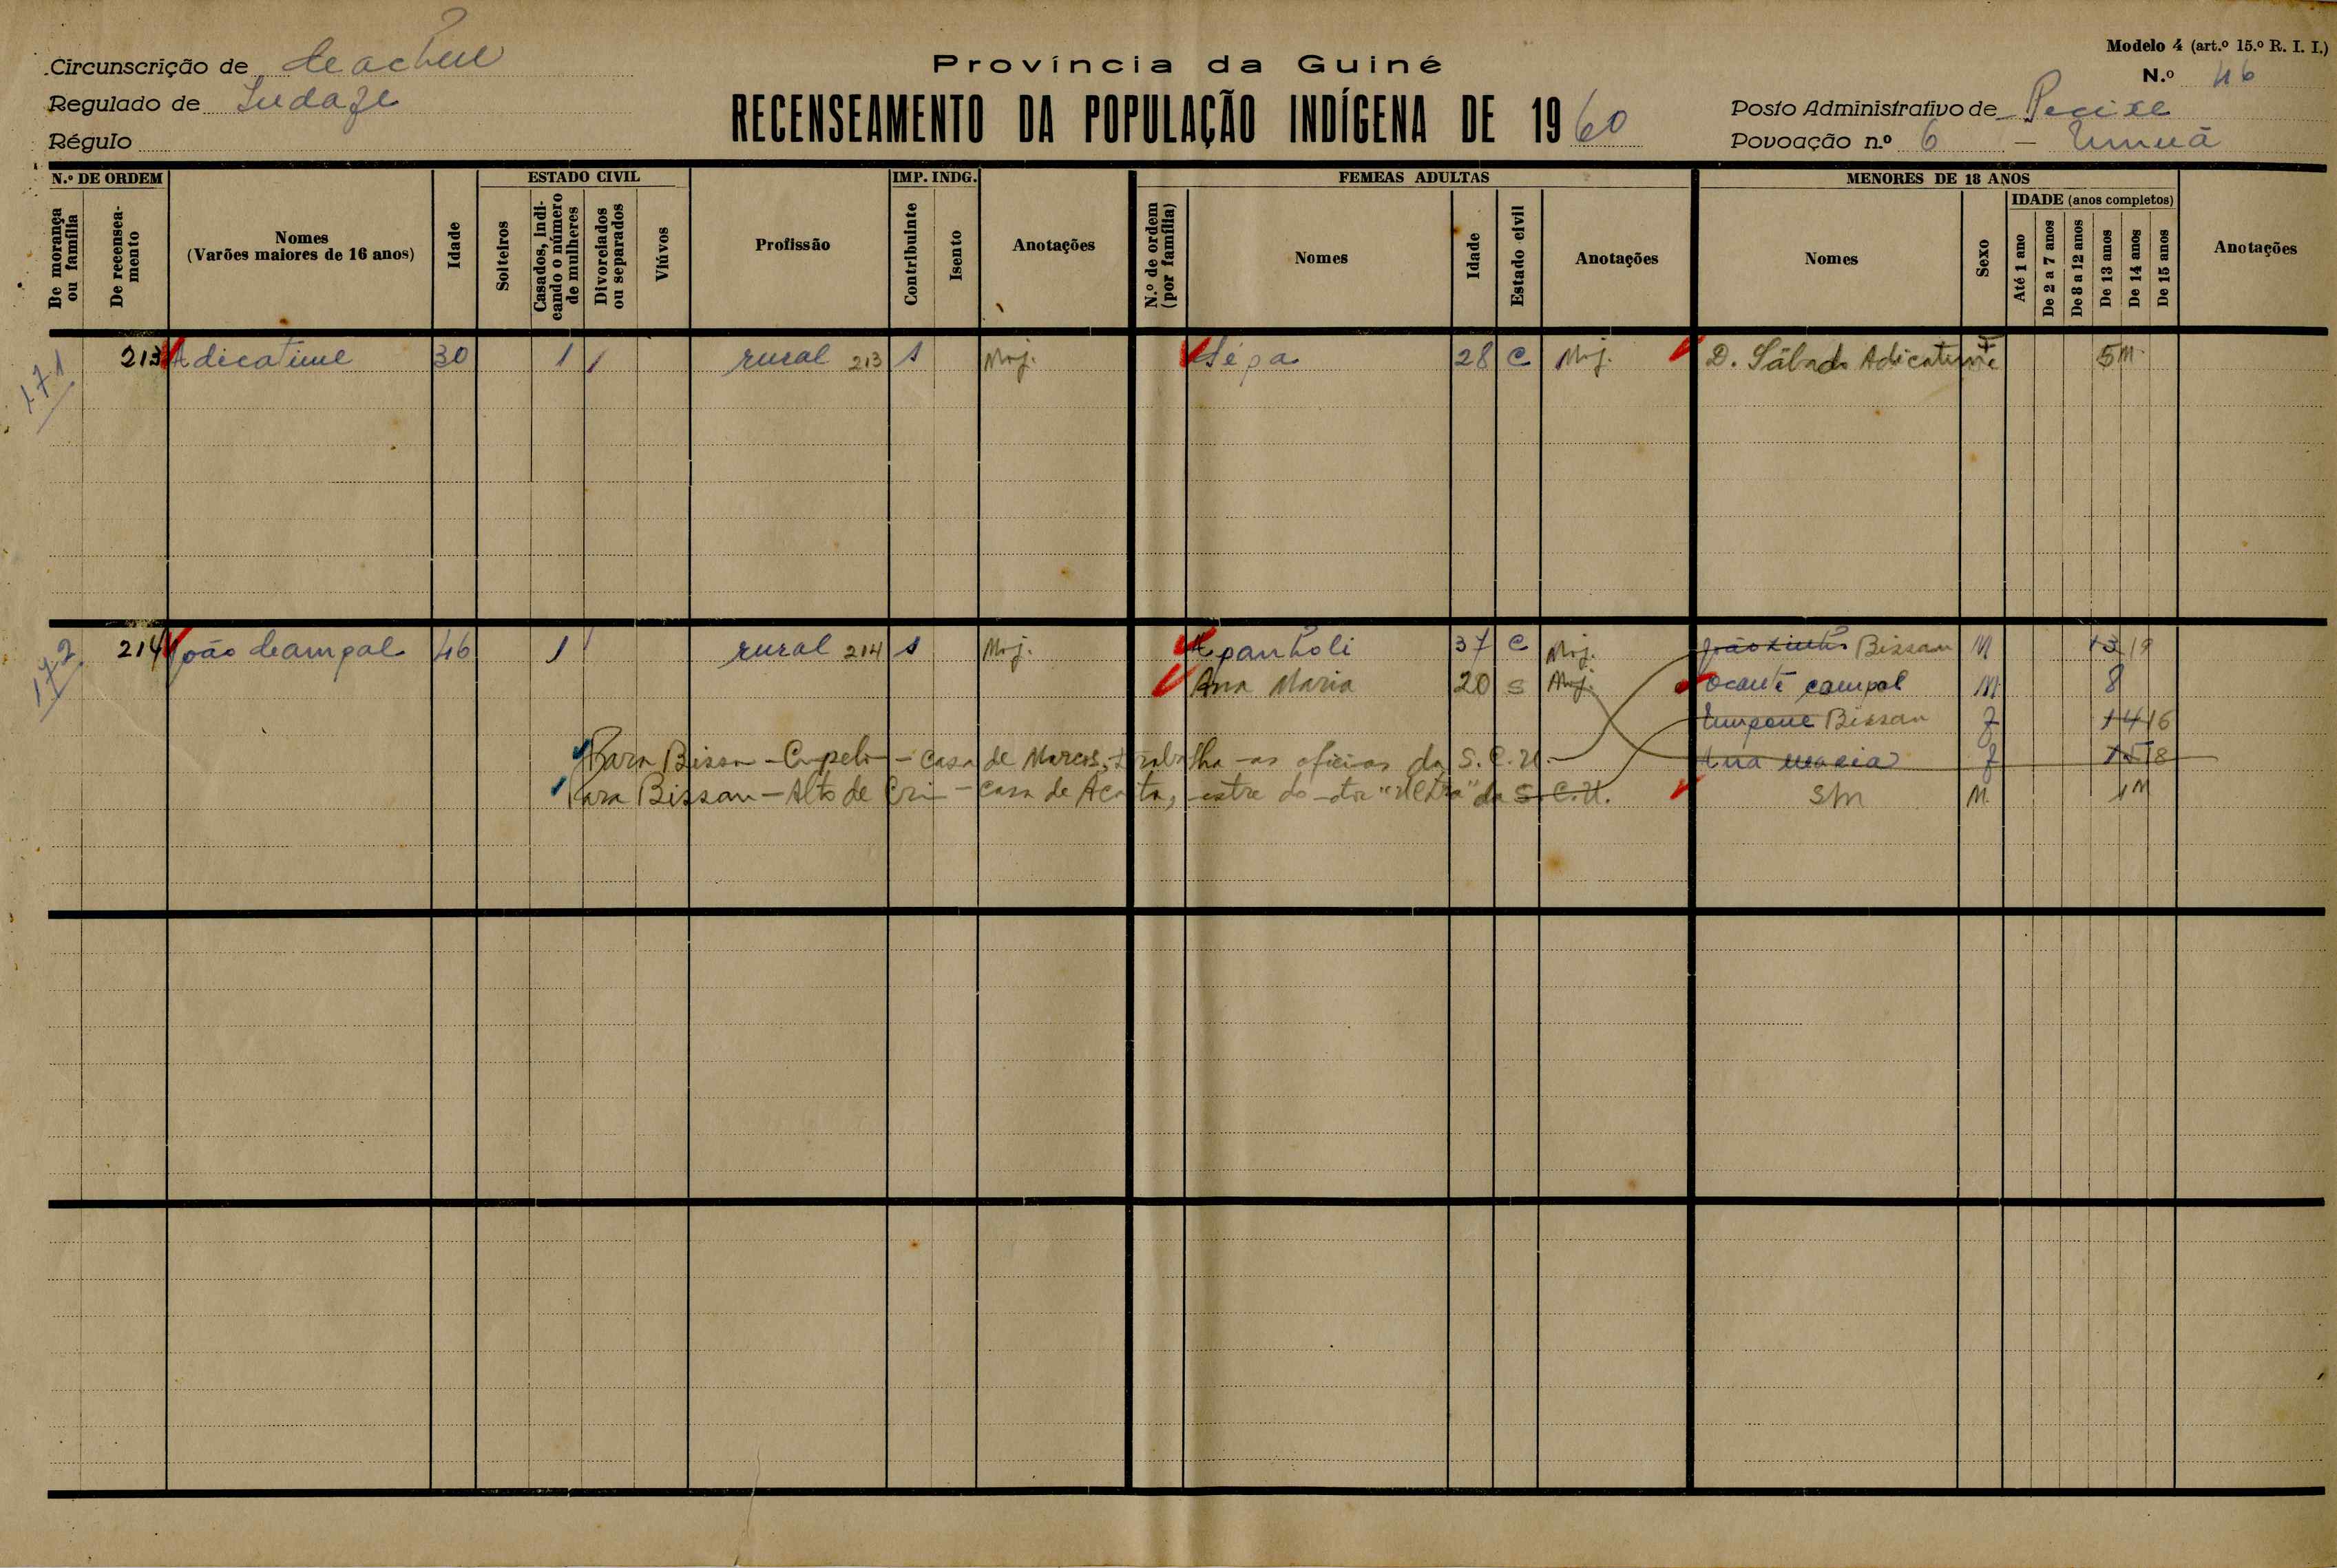 Circunscrição de Cacheu
Província da Guiné
Modelo 4 (art.º 15.º R. I. I.)
N.º 46
Regulado de
RECENSEAMENTO DA POPULAÇÃO INDÍGENA DE 1960
Posto Administrativo de Pecixe
Régulo
Povoação n.º 6 –
N.º DE ORDEM
ESTADO CIVIL
IMP. INDG.
FEMEAS ADULTAS
MENORES DE 18 ANOS
De morança ou família
De recenseamento
Nomes
(Varões maiores de 16 anos)
Idade
Solteiros
Casados, indicando o número de mulheres
Divorciados ou separados
Viúvos
Profissão
Contribuinte
Isento
Anotações
N.º de ordem (por família)
Nomes
Idade
Estado civil
Anotações
Nomes
Sexo
IDADE (anos completos)
Até 1 ano
De 2 a 7 anos
De 8 a 12 anos
De 13 anos
De 14 anos
De 15 anos
Anotações
171 213 Adicatime 30 1 rural 213 1 Moj. Sépa 28 C Moj. D. Sábado Adicatime f 5M
172 214 João Campal 46 1 rural 214 1 Moj. 37 C Moj. Bissau M 13 19
Ana Maria 20 S Moj. Ocante campal M 8
Bissau f 14 16
Para Bissau – Cupelo – casa de Marcos, trabalha nas oficinas da S.C.U. Ana Maria f 15 18
Para Bissau – Alto de Crim – casa de Acosta, mestre do motor da S.C.U. S/n M 1M